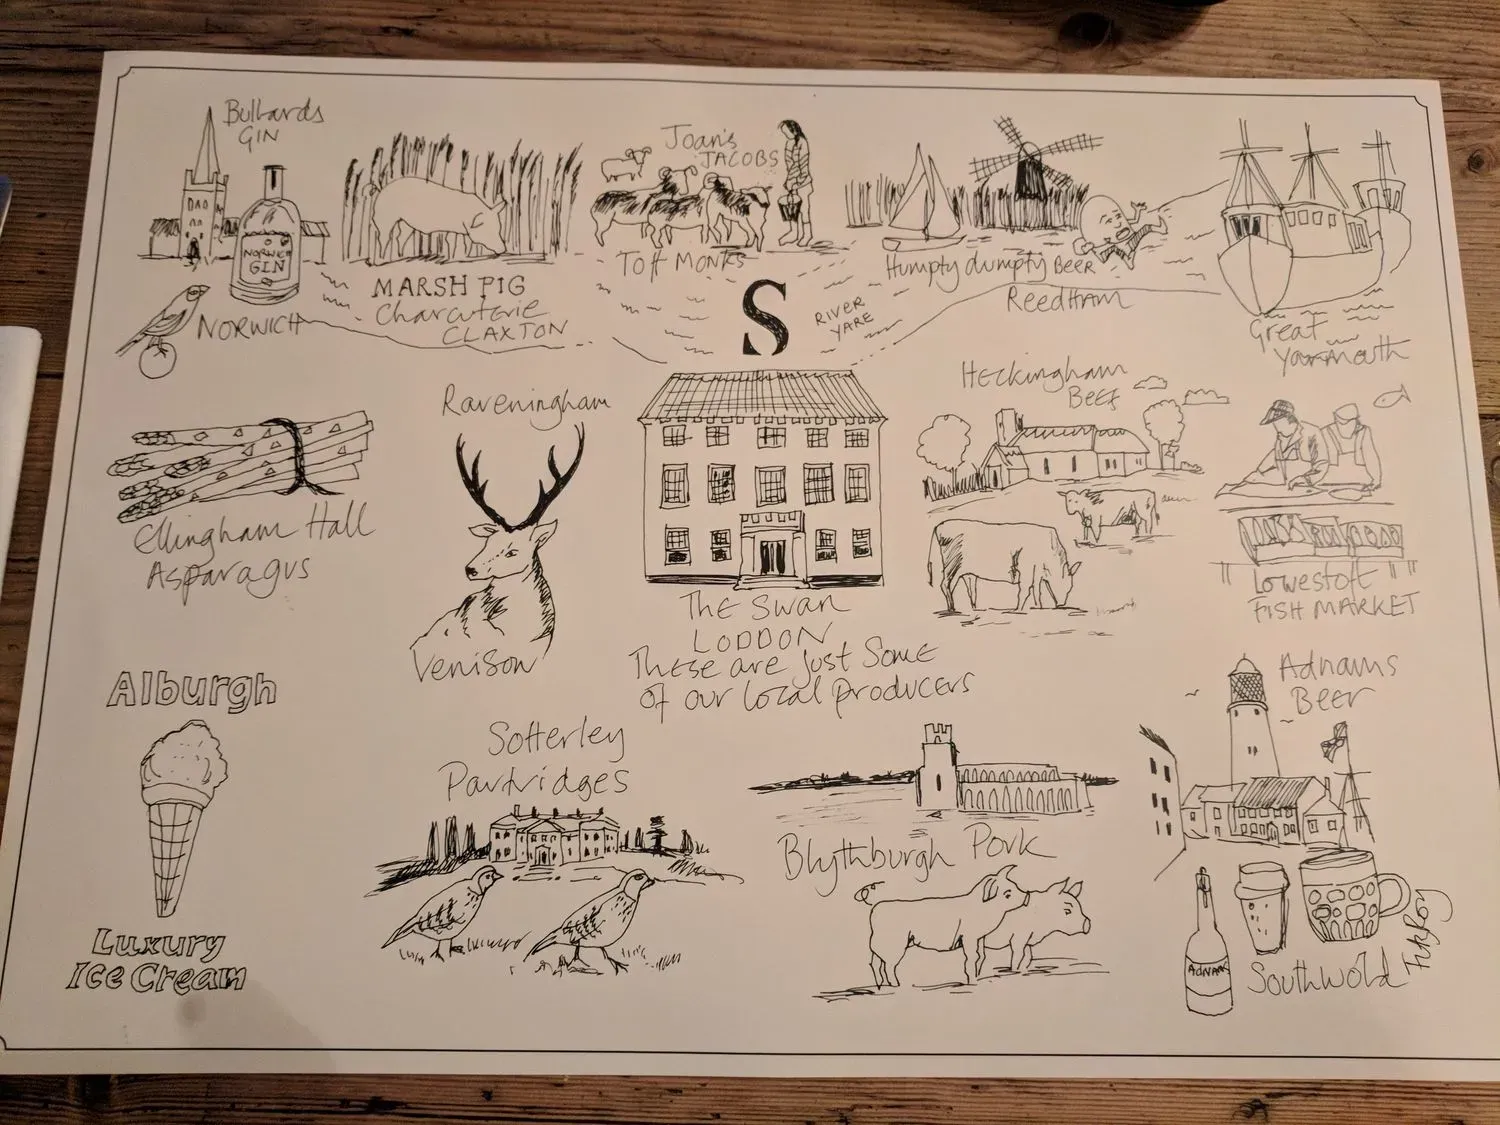 Bullards
GIN
NORWICH
GIN
NORWICH
MARSH PIG
Charcuterie
CLAXTON
Joan's
JACOBS
Toft MONKS
Humpty dumpty BEER
ReedHam
RIVER
YARE
Great
Yarmouth
S
Ellingham Hall
Asparagus
Raveningham
Venison
THE SWAN
LODDON
These are just Some
of our local producers
Heckingham
BEEf
"Lowestoft"
FISH MARKET
Alburgh
Luxury
Ice Cream
Sotterley
Partridges
Blythburgh Pork
Adnams
Beer
ADNAMS
Southwold